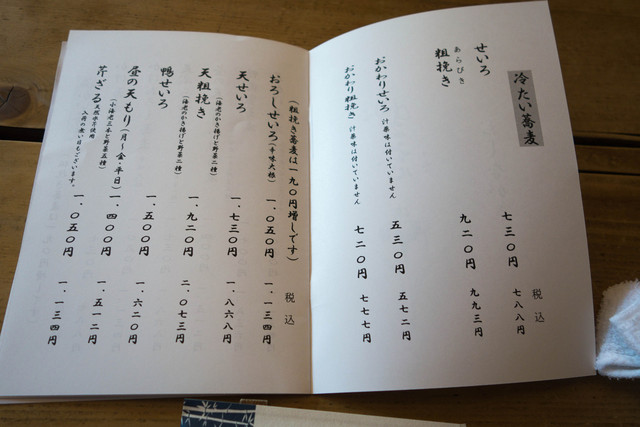 冷たい蕎麦
税込
せいろ 七三〇円 七八八円
あらびき
粗挽き 九二〇円 九九三円
おかわりせいろ 汁薬味は付いていません 五三〇円 五七二円
おかわり粗挽き 汁薬味は付いていません 七二〇円 七七七円
(粗挽き蕎麦は一九〇円増しです)
税込
おろしせいろ(辛味大根) 一、〇五〇円 一、一三四円
天せいろ 一、七三〇円 一、八六八円
(海老のかき揚げと野菜二種)
天粗挽き 一、九二〇円 二、〇七三円
(海老のかき揚げと野菜二種)
鴨せいろ 一、五〇〇円 一、六二〇円
昼の天もり(月〜金・平日) 一、四〇〇円 一、五一二円
(小海老三本と野菜五種)
芹ざる 天然芹使用 一、〇五〇円 一、一三四円
入荷の無い日もございます。